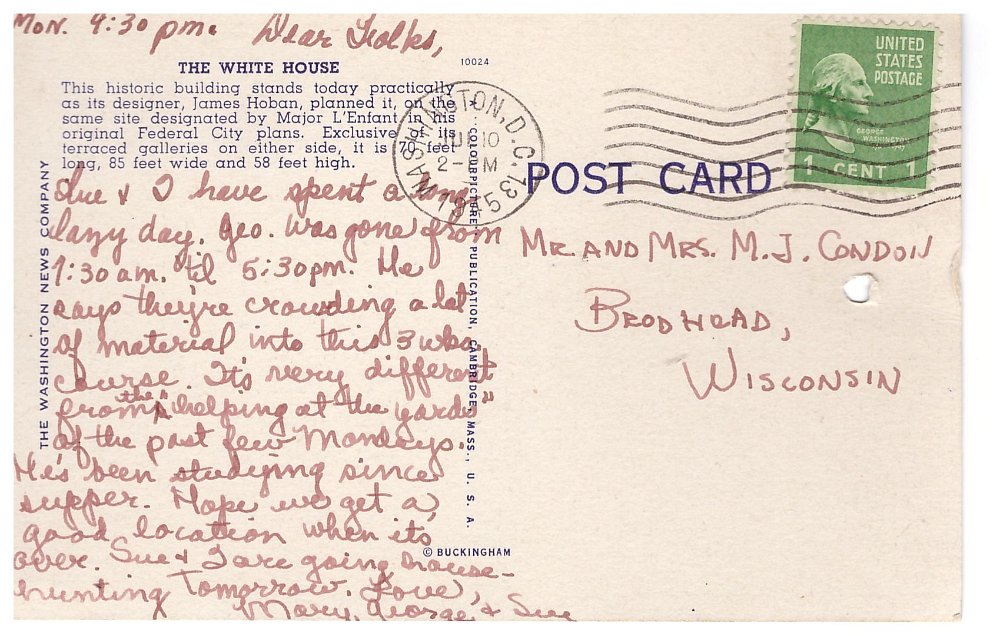 Mon. 9:30 pm. Dear Folks,
THE WHITE HOUSE
10024
This historic building stands today practically
as its designer, James Hoban, planned it, on the
same site designated by Major L'Enfant in his
original Federal City plans. Exclusive of its
terraced galleries on either side, it is 170 feet
long, 85 feet wide and 58 feet high.
Sue & I have spent a long
lazy day. Geo. was gone from
7:30 am. til 5:30 pm. He
says they're crowding a lot
of material into this 3 wks.
course. It's very different
from the "helping at the yards"
of the past few Mondays.
He's been studying since
supper. Hope we get a
good location when its
over. Sue & I are going house-
hunting tomorrow. Love,
Mary, George, & Sue
THE WASHINGTON NEWS COMPANY
COLOURPICTURE PUBLICATION, CAMBRIDGE, MASS., U. S. A.
© BUCKINGHAM
WASHINGTON, D.C. 13
10
POST CARD
UNITED
STATES
POSTAGE
GEORGE
WASHINGTON
1 CENT 1
Mr. and Mrs. M. J. Condon
Brodhead,
Wisconsin